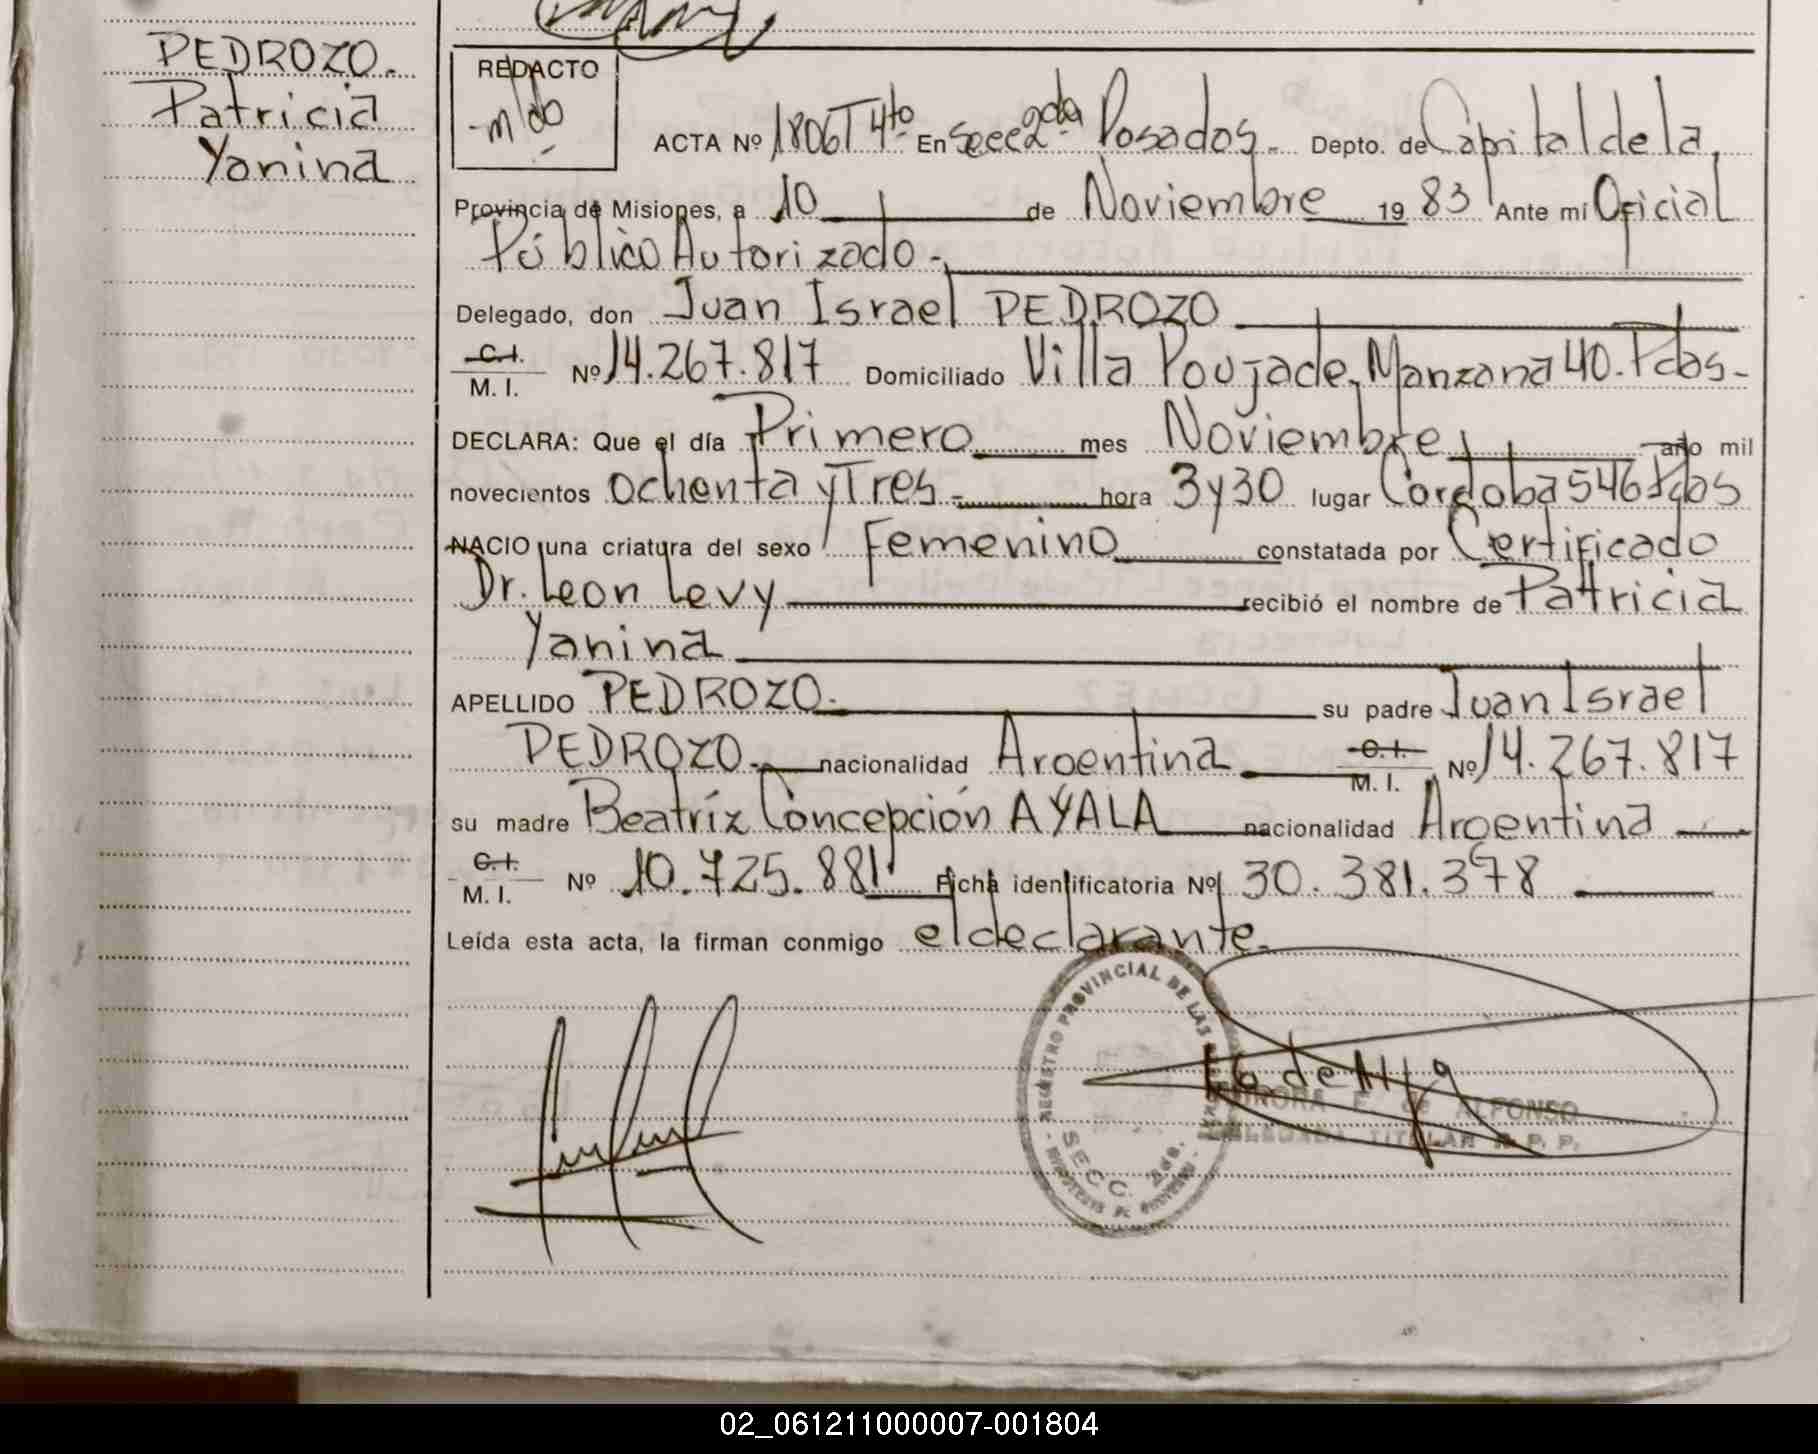 PEDROZO.
Patricia
Yanina
REDACTO
mdo
ACTA Nº 1806 T 4to En Secc 2da Posadas. Depto. de Capital de la
Provincia de Misiones, a 10 de Noviembre 1983 Ante mí Oficial
Público Autorizado.
Delegado, don Juan Israel PEDROZO
C.I.
M. I. Nº 14.267.817 Domiciliado Villa Poujade, Manzana 40. Pdas.
DECLARA: Que el día Primero mes Noviembre año mil
novecientos ochenta y Tres. hora 3 y 30 lugar Cordoba 546 Pdas
NACIO una criatura del sexo Femenino constatada por Certificado
Dr. Leon Levy recibió el nombre de Patricia
Yanina
APELLIDO PEDROZO. su padre Juan Israel
PEDROZO. nacionalidad Argentina C.I. M. I. Nº 14.267.817
su madre Beatríz Concepción AYALA nacionalidad Argentina
C.I.
M. I. Nº 10.725.881 Ficha identificatoria Nº 30.381.378
Leída esta acta, la firman conmigo el declarante.
REGISTRO PROVINCIAL DE LAS
SECC. 2da.
E. de ALFONSO
DELEGADA TITULAR R. P. P.
02_061211000007-001804